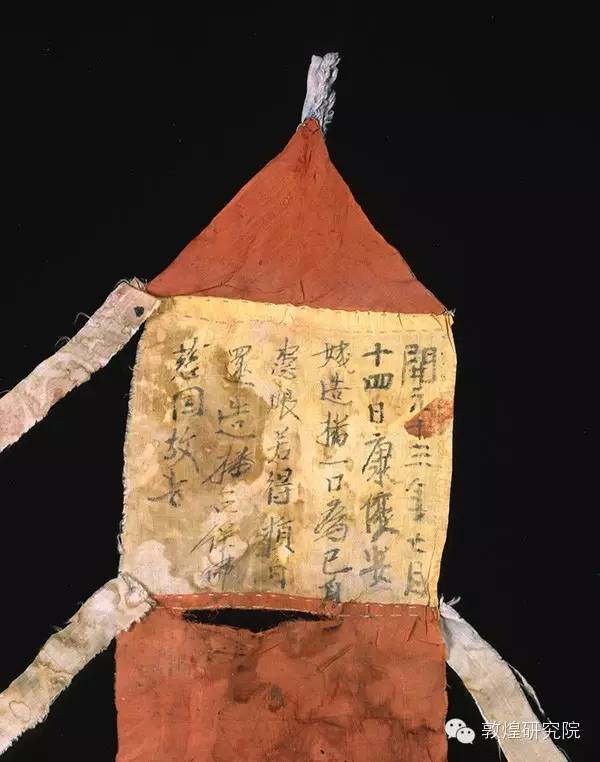 開元十三年七月
十四日康優婆
姨造播一口為己身
患眼若得損日
還造播保佛
慈因故告
敦煌研究院